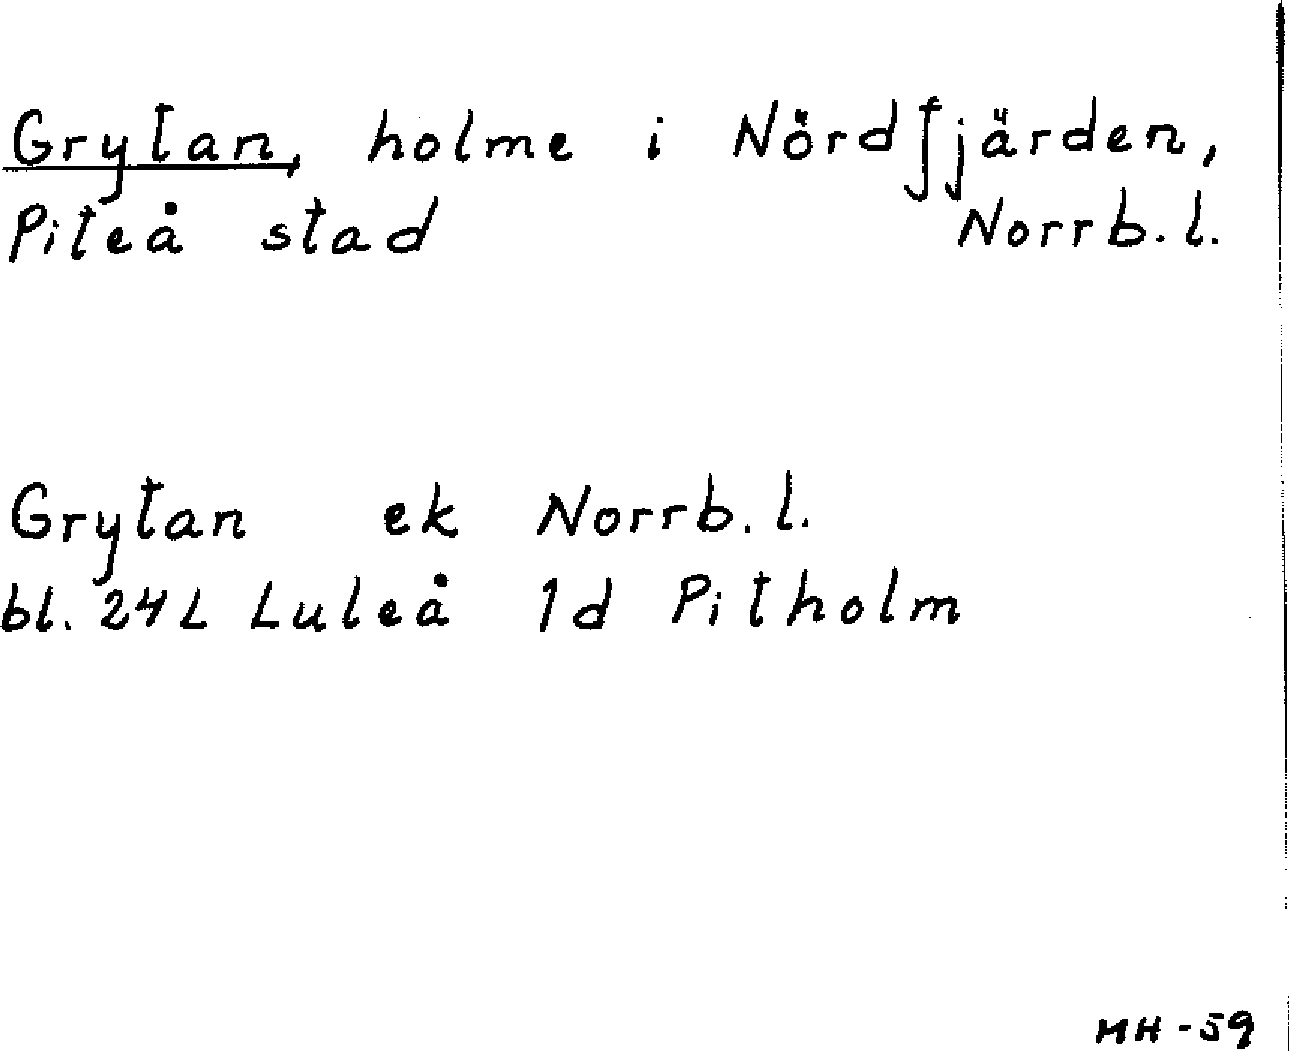 Grytan, holme i Nördfjärden,
Piteå stad Norrb. l.
Grytan ek Norrb. l.
bl. 24L Luleå 1d Pitholm
MH-59